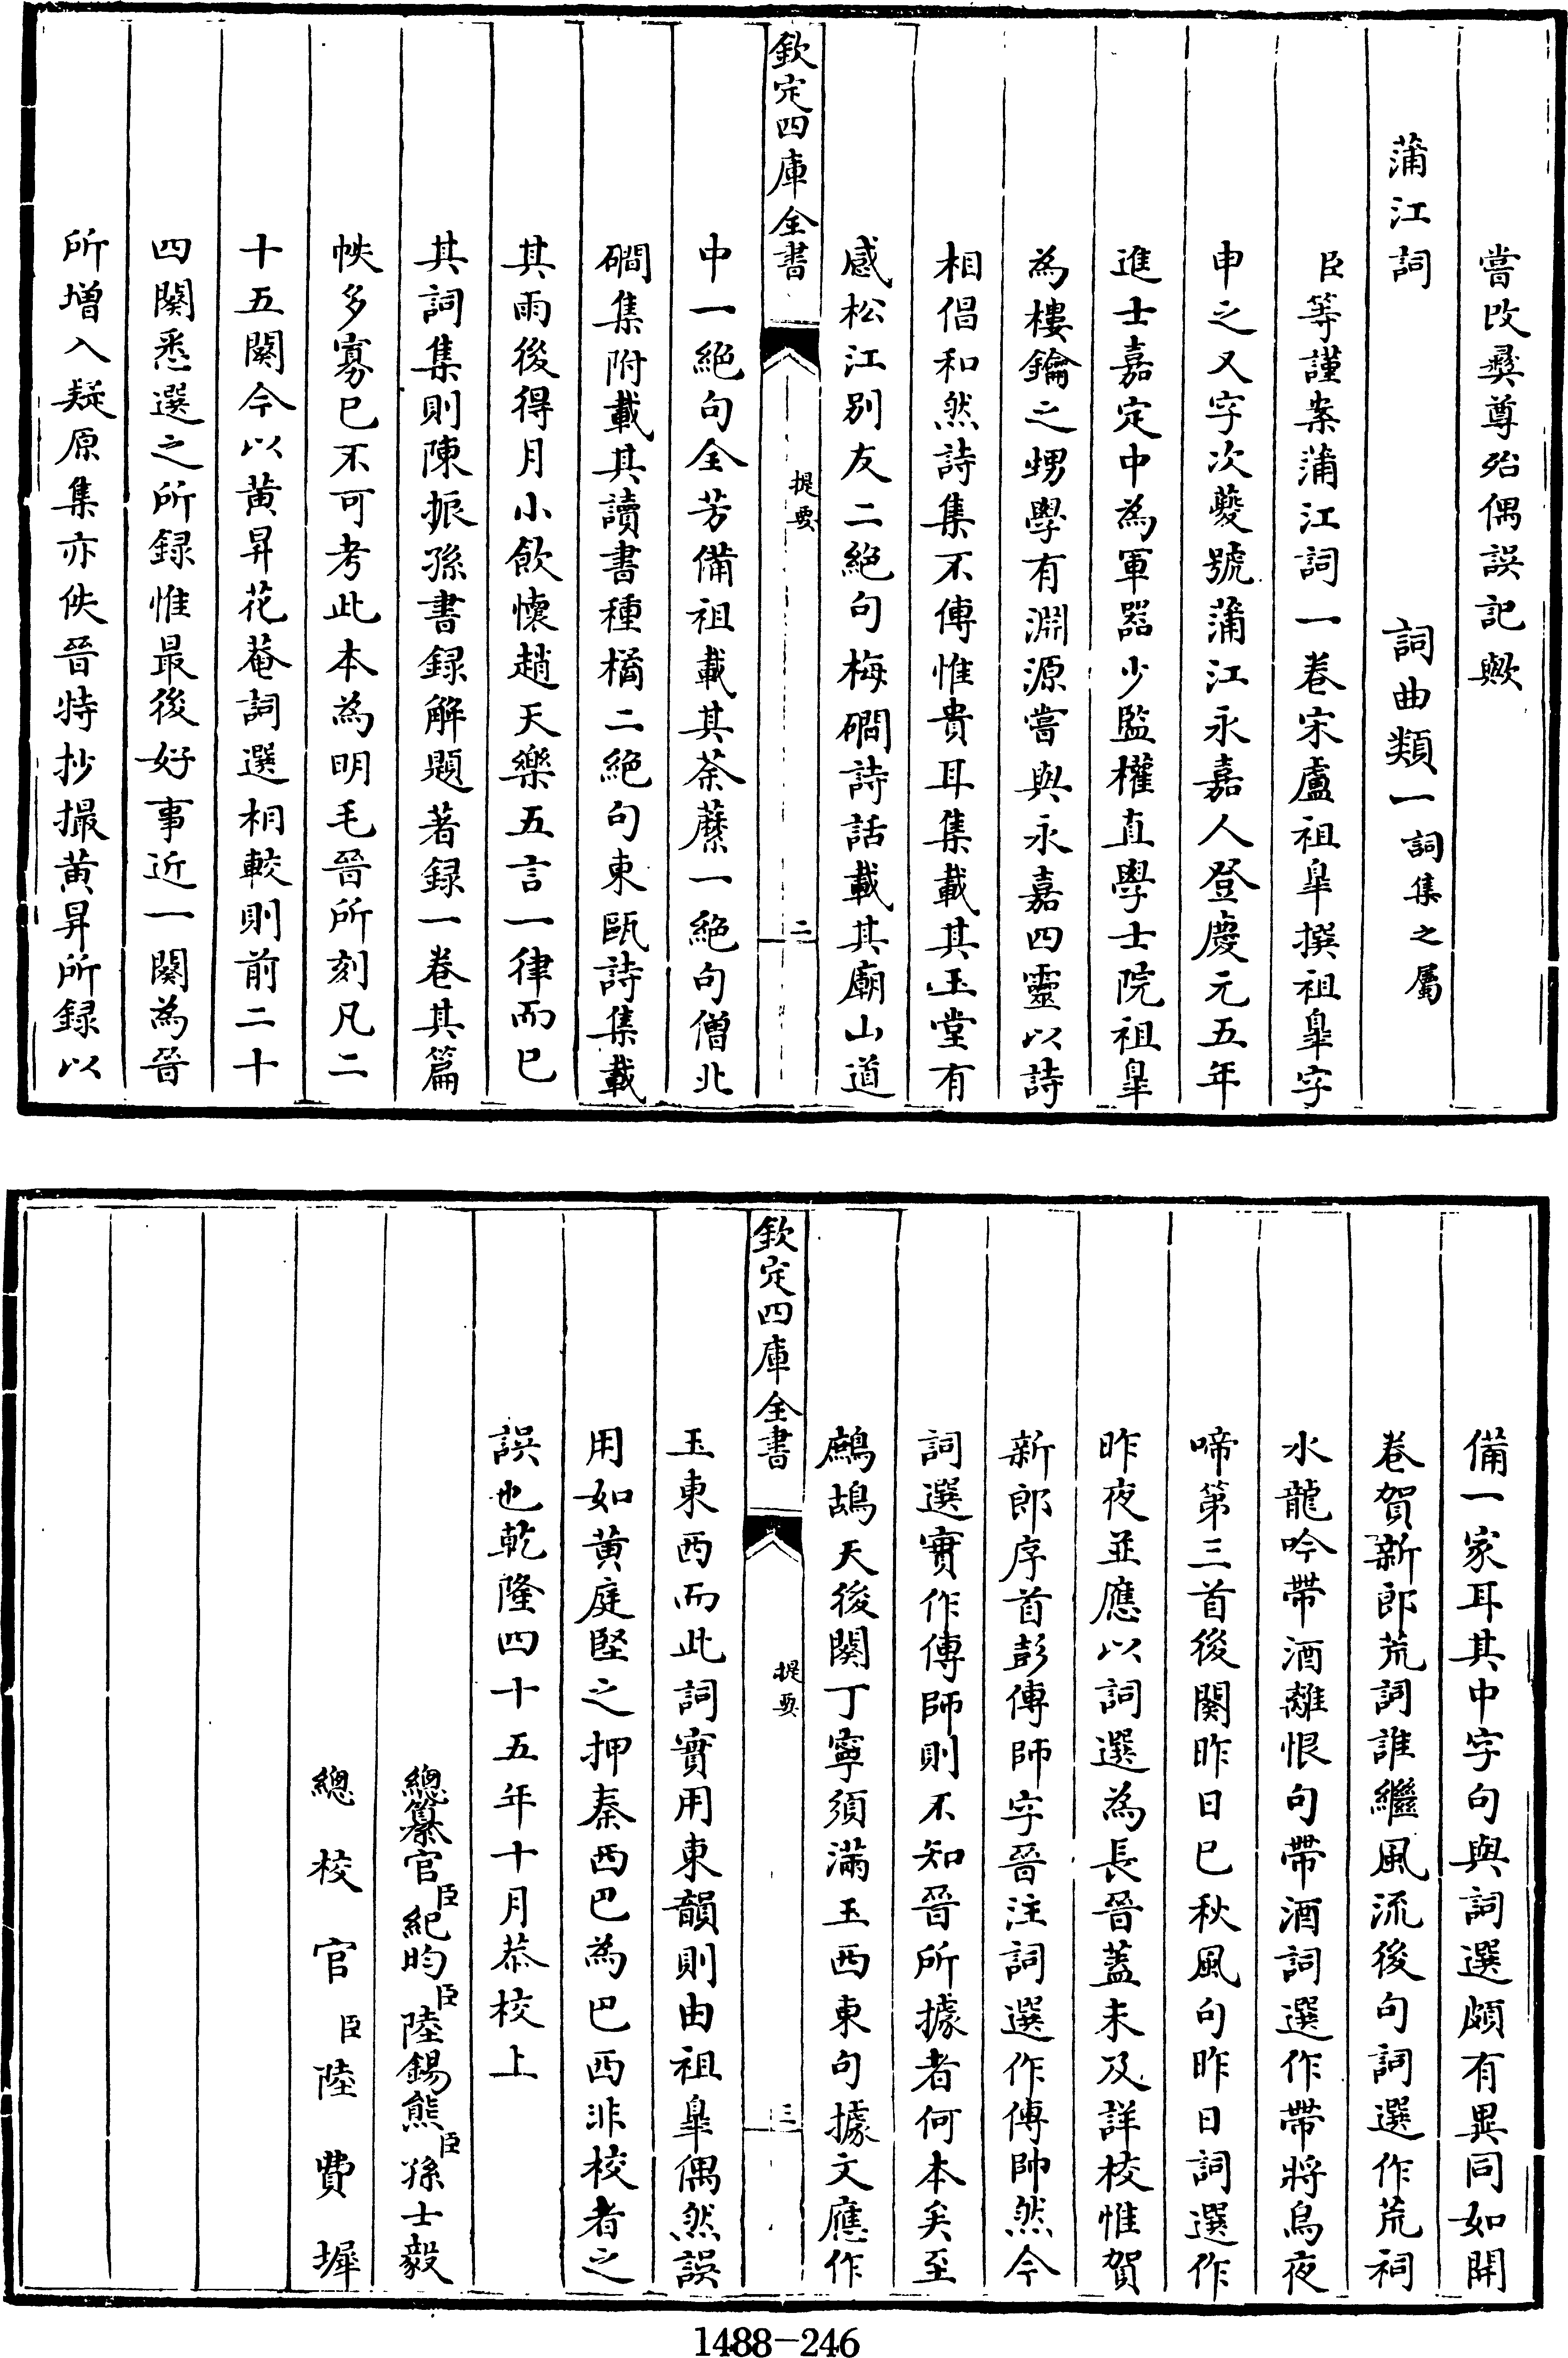 嘗改彞尊殆偶誤記歟
蒲江詞　詞曲類一詞集之屬
臣等謹案蒲江詞一卷宋盧祖臯撰祖臯字
申之又字次夔號蒲江永嘉人登慶元五年
進士嘉定中為軍器少監權直學士院祖臯
為樓鑰之甥學有淵源嘗與永嘉四靈以詩
相倡和然詩集不傳惟貴耳集載其玉堂有
感松江别友二絶句梅磵詩話載其廟山道
欽定四庫全書　提要　二
中一絶句全芳備祖載其荼蘼一絶句僧北
磵集附載其讀書種橘二絶句東甌詩集載
其雨後得月小飲懷趙天樂五言一律而已
其詞集則陳振孫書録解題著録一卷其篇
帙多寡已不可考此本為明毛晉所刻凡二
十五闋今以黄昇花菴詞選相較則前二十
四闋悉選之所録惟最後好事近一闋為晉
所增入疑原集亦佚晉特抄撮黄昇所録以
備一家耳其中字句與詞選頗有異同如開
卷賀新郎荒詞誰繼風流後句詞選作荒祠
水龍吟帶酒離恨句帶酒詞選作帶將烏夜
啼第三首後闋昨日已秋風句昨日詞選作
昨夜並應以詞選為長晉蓋未及詳校惟賀
新郎序首彭傳師字晉注詞選作傳帥然今
詞選實作傳師則不知晉所據者何本矣至
鷓鴣天後闋丁寧須滿玉西東句據文應作
欽定四庫全書　提要　三
玉東西而此詞實用東韻則由祖臯偶然誤
用如黄庭堅之押秦西巴為巴西非校者之
誤也乾隆四十五年十月恭校上
總纂官臣紀昀臣陸錫熊臣孫士毅
總校官臣陸費墀
1488-246